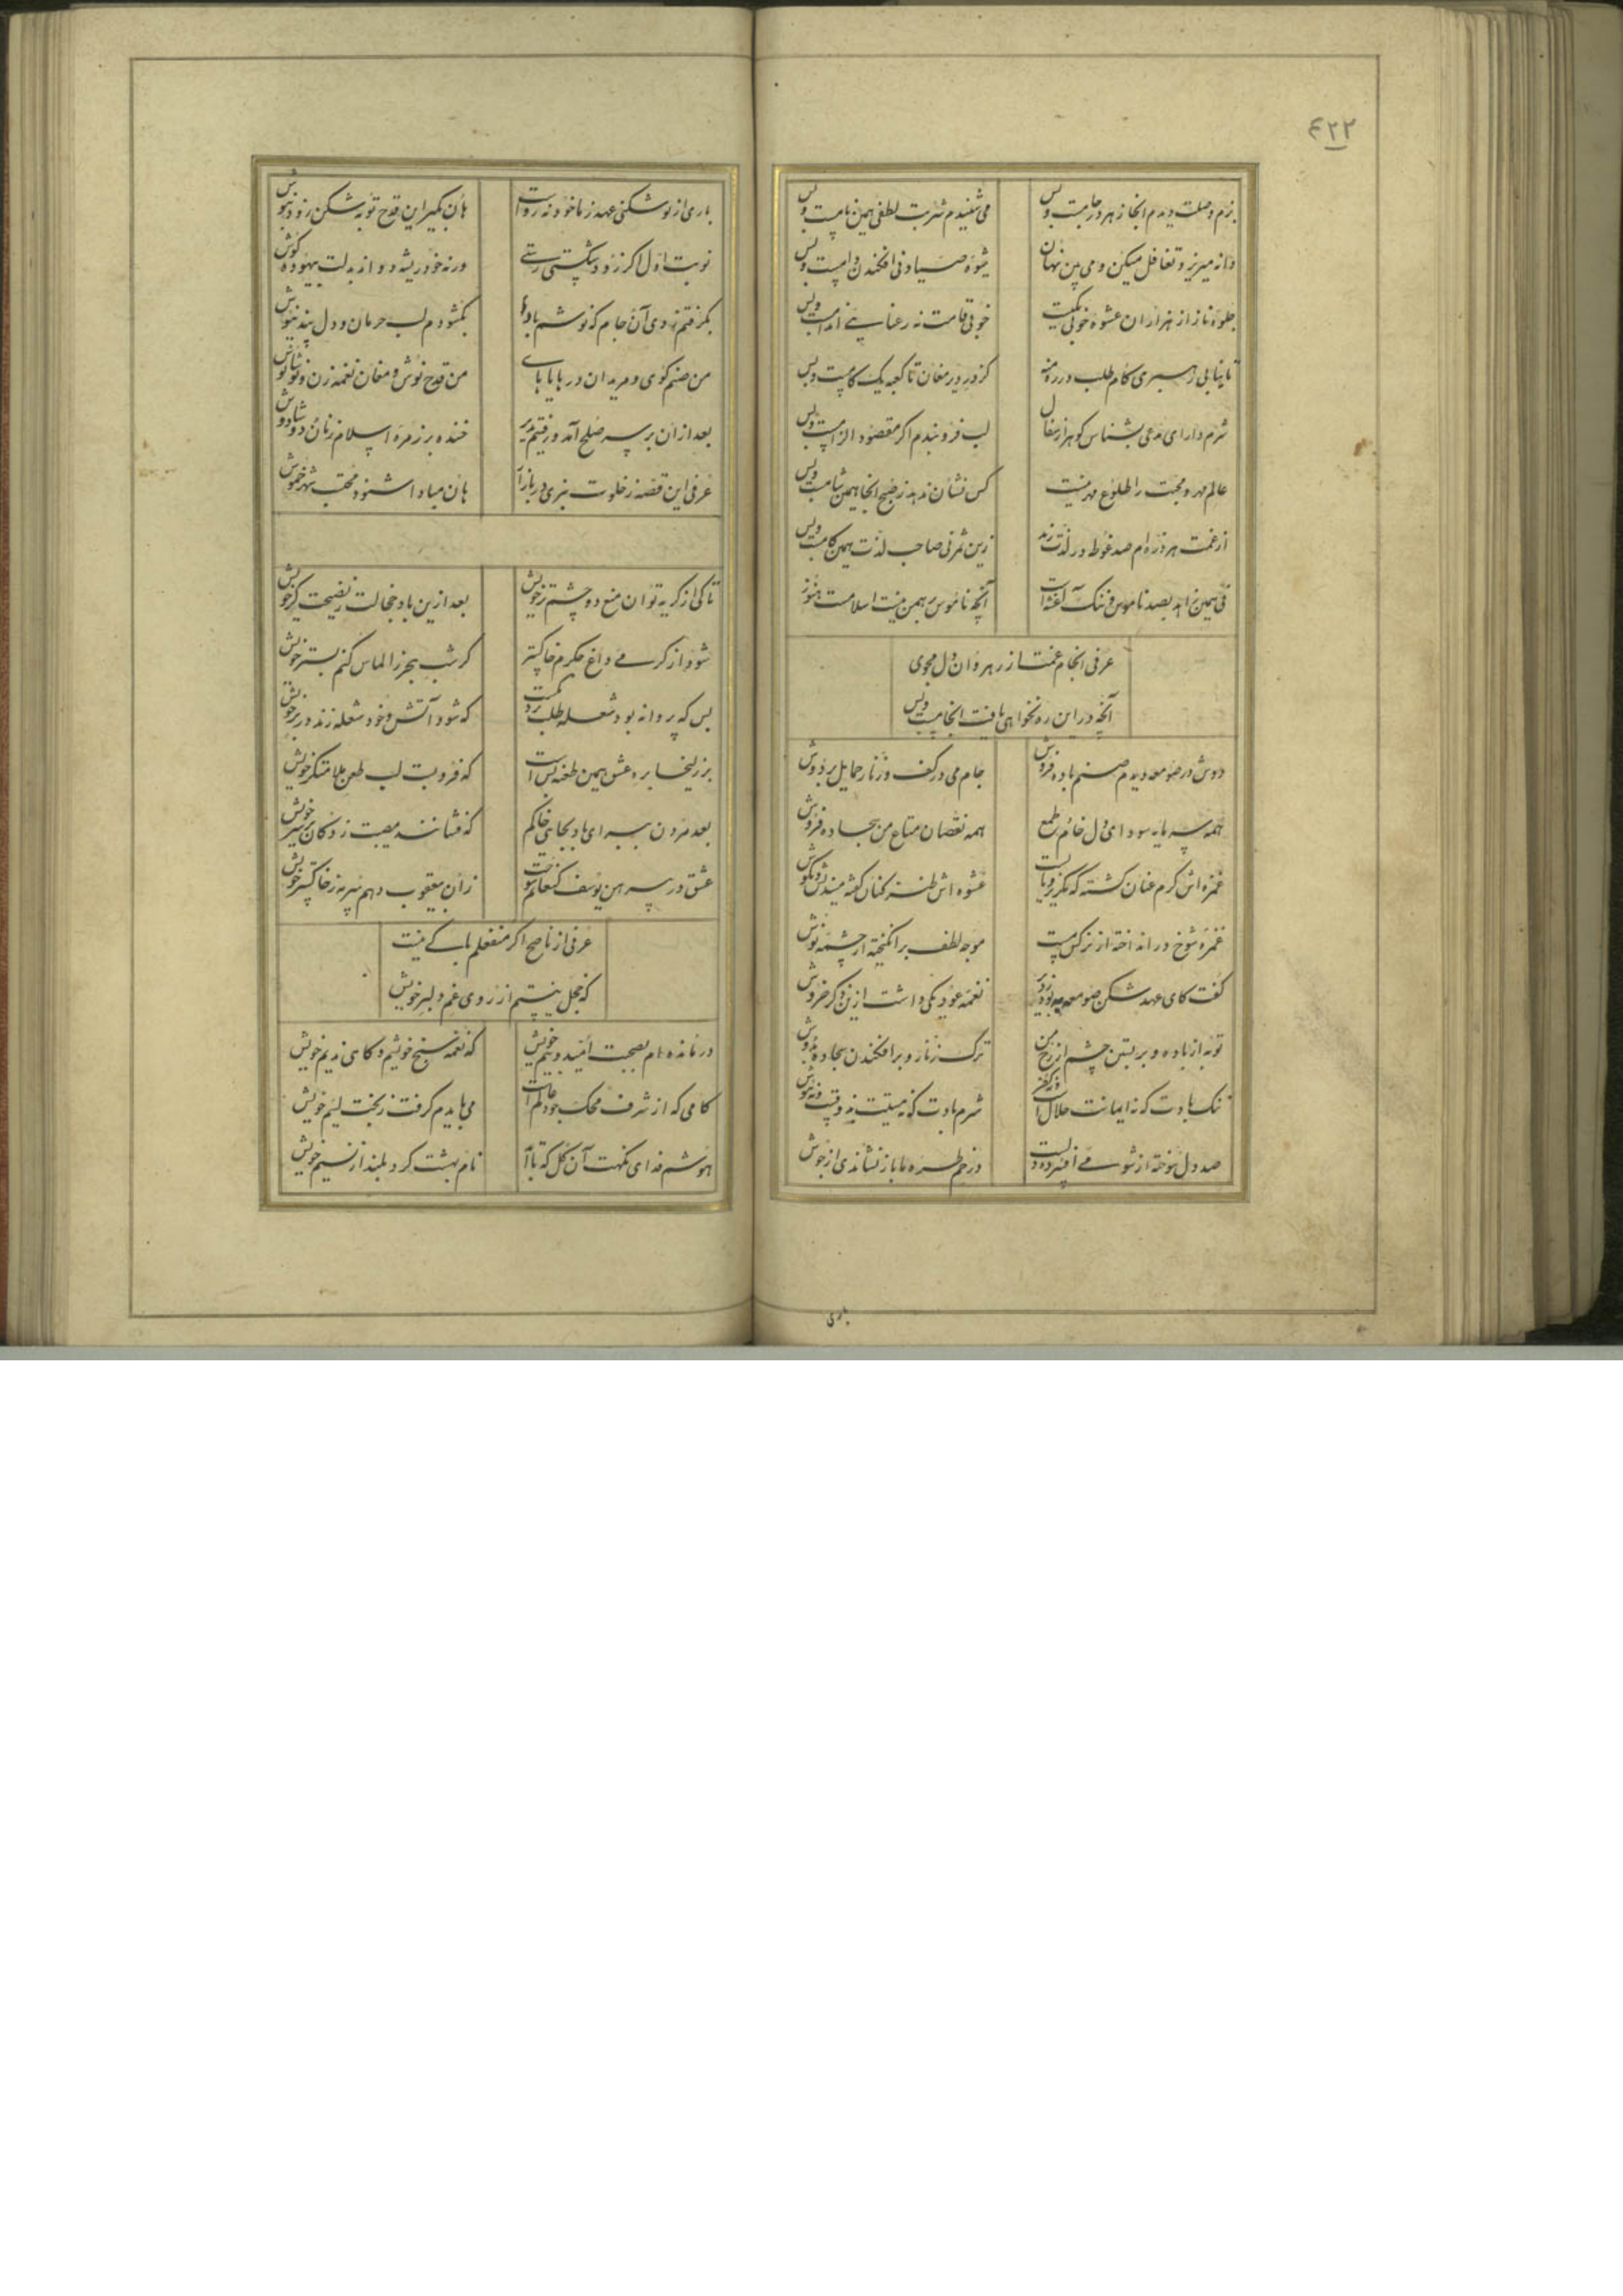 ۴۲۲
بزم وصلت دیدم انجا زهر در جامست و بس
می شنیدم شربت لطفی همین نامست و بس
دانه میریز و تغافل میکن و می بین نهان
شیوه صیاد نی افکندن دامست و بس
جلوه ناز از هزاران عشوه خوبی یکیست
خوبی قامت نه رعنایی اندامست و بس
تا نیابی رهبری کام طلب در ره منه
کز در دیر مغان تا کعبه یک کامست و بس
شرم دار ای مدعی بشناس گوهر از سفال
لب فرو بندم اکر مقصود الزامست و بس
عالم مهر و محبت را طلوع مهر نیست
کس نشان ندهد ز صبح انجا همین شامست و بس
از غمت هر ذره ام صد غوطه در لذت زند
زین ثمر نی صاحب لذت همین کامست و بس
نی همین زاهد بصد ناموس و ننک آغشته است
آنچه ناموس برهمن نیست اسلامست هنوز
عرفی انجام غمت از رهروان دل مجوی
آنچه در این ره نخواهی یافت انجامست و بس
دوش در صومعه دیدم صنم باده فروش
جام می در کف و زنار حمایل بر دوش
همه سرمایه سودای دل خام طمع
همه نقصان متاع من سجاده فروش
غمزه اش کرم عنان کشته که بگریز و بایست
عشوه اش طنز کنان کفته میندیش و بکوش
غمزه شوخ در انداخته از نرکس مست
موجه لطف بر انکیخته از چشمه نوش
کفت کای عهد شکن صومعه
نغمه عود یکی داشت ازین ذکر خروش
توبه از باده و بر بستن چشم از رخ من
ترک زنار و بر افکندن سجاده بدوش
ننک بادت که نه ایمانت حلال است
شرم بادت که نه مستیت نه وقت
صد دل سوخته از شومی افسرده دلیست
در خم طره ما باز نشاندی از جوش
باری
باری از نو شکنی عهد ز ما خود نه رواست
هان بکیر این قدح توبه شکن زود بنوش
نوبت اول اکر زود شکستی رستی
ورنه خود ریشه دواند بدلت بیهوده کوش
بگرفتم ز وی آن جام که نوشم بادا
بگشودم لب حرمان و دل پند نیوش
من صنم کوی و مریدان در هایاهای
من قدح نوش و مغان نغمه زن و نوشانوش
بعد از آن بر سر صلح آمد و رفتیم بدیر
خنده بر زمره اسلام زنان دوشادوش
عرفی این قصه ز خلوت نبری در بازار
هان مبادا شنود محتسب شهر خموش
تا کی از کریه توان منع دو چشم تر خویش
بعد ازین باد خجالت ز نصیحت کر خویش
شود از کرمی داغ جکرم خاکستر
کر شب هجر ز الماس کنم بستر خویش
بس که پروانه بود شعله طلب
که شود آتش و خود شعله زند در پر خویش
بر زلیخا بره عشق همین طعنه بس است
که فرو بست لب طعن ملامتکر خویش
بعد مردن ببر ای باد بجایی خاکم
که فشانند مصیبت زدکان بر سر خویش
عشق در پیرهن یوسف کنعانم سوخت
زان بیعقوب دهم سرمه ز خاکستر خویش
عرفی از ناصح اکر منفعلم باکی نیست
که خجل نیستم از روی غم دلبر خویش
درمانده ام بصحبت امید و بیم خویش
که نغمه سنج خویشم و کاهی ندیم خویش
کامی که از شرف محک جود حاتم است
می بایدم کرفت ز بخت لئیم خویش
هوشم فدای نکهت آن کل که تا
نام بهشت کرد بلند از نسیم خویش